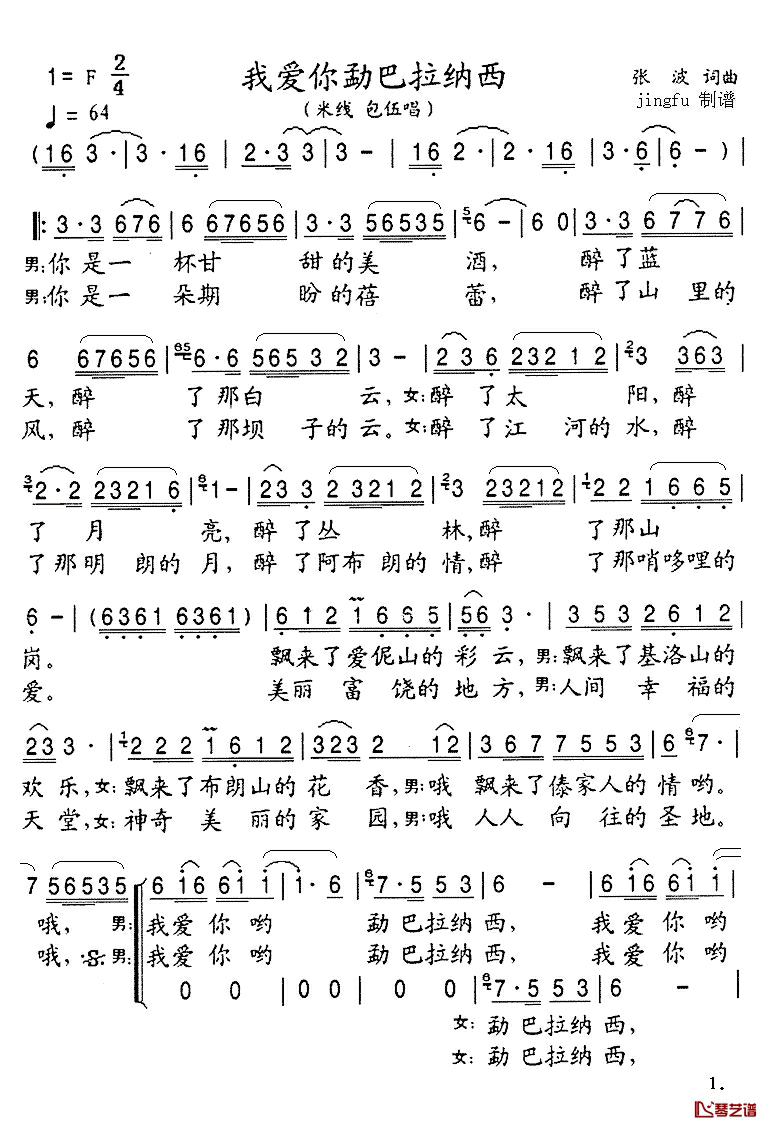 1= F 2/4 我爱你勐巴拉纳西 张 波 词曲
♩= 64 (米线 包伍唱) jingfu 制谱
(16 3·|3· 16 | 2·3 3|3 – |16 2·|2· 16 |3·6|6 – )|
‖: 3·3 676 |6 67656 |3·3 56535 |6 – |6 0 |3·3 6 7 7 6
男:你是一 杯甘 甜的美 酒, 醉了蓝
男:你是一 朵期 盼的蓓 蕾, 醉了山里的
6 67656 |65 6·6 5653 2 |3 – |2 3 6 2321 2 |2 3 363
天,醉 了那白 云,女:醉 了太 阳,醉
风,醉 了那坝 子的云。女:醉 了江 河的水,醉
3 2·2 23216 |6 1 – |2 3 3 2 321 2 |2 3 23212 |1 2 2 2 1 6 6 5
了 月 亮,醉了丛 林,醉 了那山
了那明 朗的月,醉了阿布朗的情,醉 了那哨哆哩的
6 – |(6361 6361)|6 1 2 1 6 6 5 |56 3· |3 5 3 2 6 1 2
岗。 飘来了爱伲山的彩云,男:飘来了基洛山的
爱。 美丽富饶的地方,男:人间幸福的
23 3· |1 2 2 2 1 6 1 2 |323 2 12 |3 6 7 7 5 5 3 |6 6 7·
欢乐,女:飘来了布朗山的花 香,男:哦 飘来了傣家人的情哟。
天堂,女:神奇美丽的家 园,男:哦 人人向往的圣地。
7 56535 |6 16 61 1 |1· 6 |6 7·5 5 3 |6 – |6 16 61 1
哦, 男:我爱你哟 勐巴拉纳西, 我爱你哟
哦, 男:我爱你哟 勐巴拉纳西, 我爱你哟
0 0 |0 0 |0 0 |6 7·5 5 3 |6 –
女:勐巴拉纳西,
女:勐巴拉纳西,
1.
琴艺谱